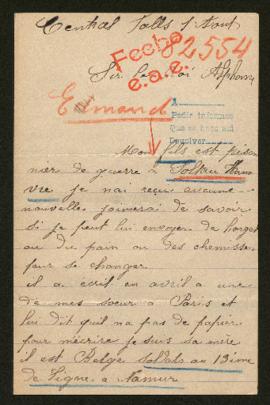 Central Falls 1 Aout
Fecho
e.a.e.
82554
Sir le Roi Alphonse
Edmand
Pedir informes
Que se haga así
Devolver
Mon fils est prison
nier de guerre a Soltau Hano
vre je nai reçu aucune
nouvelles jaimerai de savoir
si je peut lui envoyer de l'argent
ou du pain ou des chemises
pour se changer.
il a ecrit en avril a une
de mes soeur a Paris et
lui dit quil na pas de papier
pour mécrire je suis sa mère
il est Belge soldats au 13ième
de Ligne a Namur